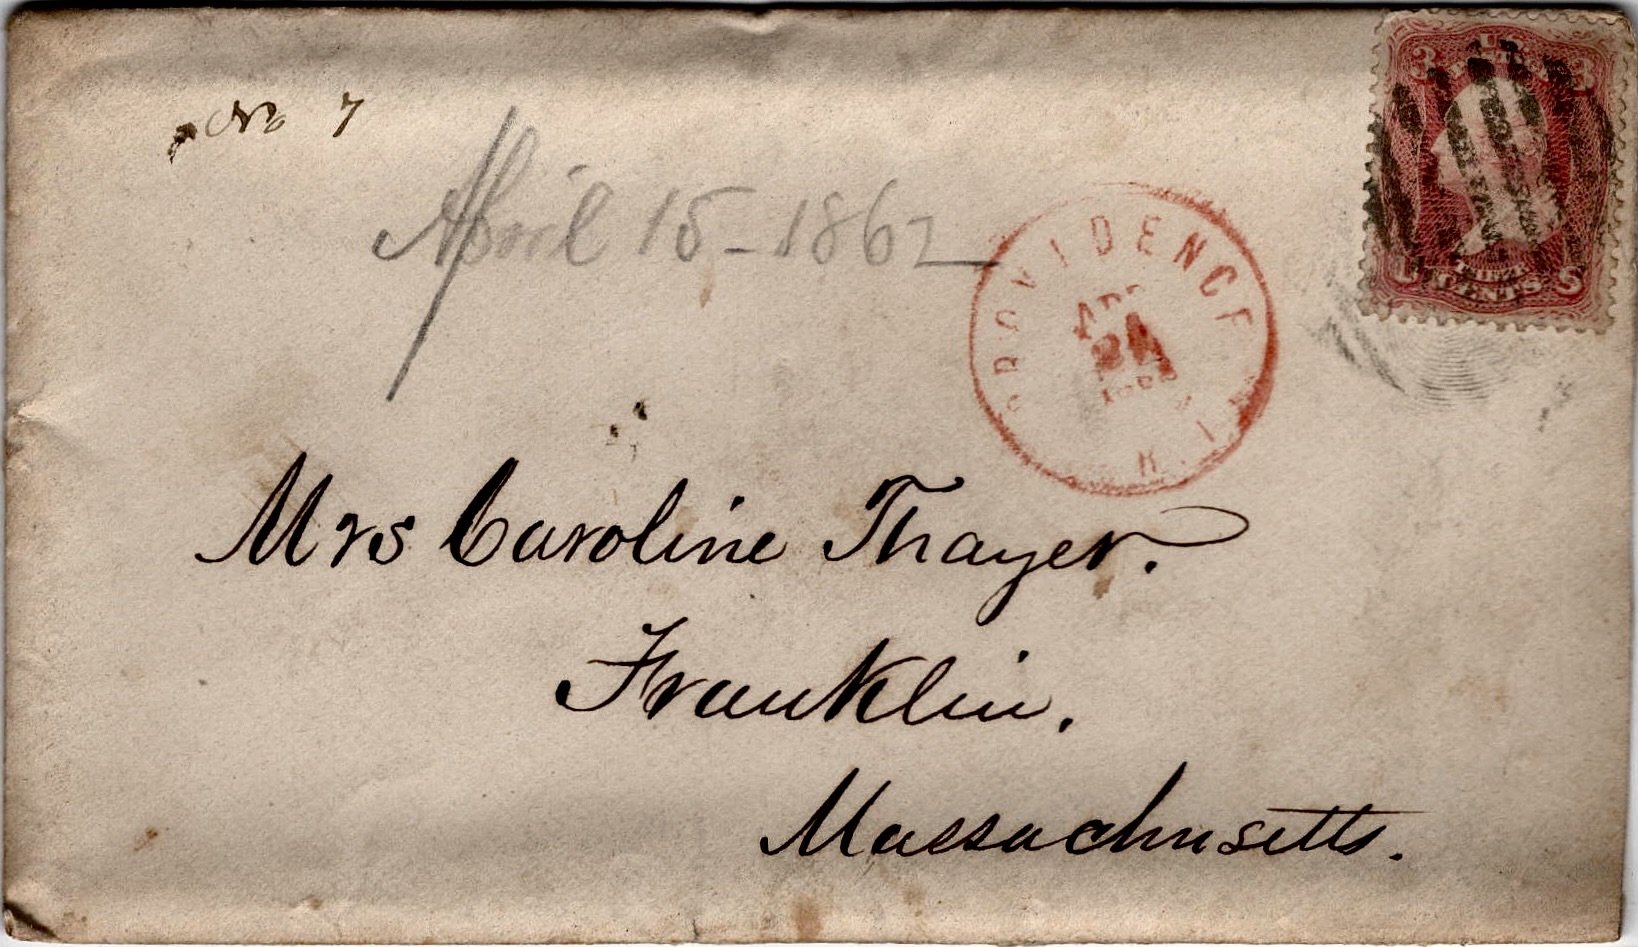 No 7
April 15-1862
PROVIDENCE
R.I.
3 3
U S
THREE
CENTS
Mrs Caroline Thayer.
Franklin.
Massachusetts.